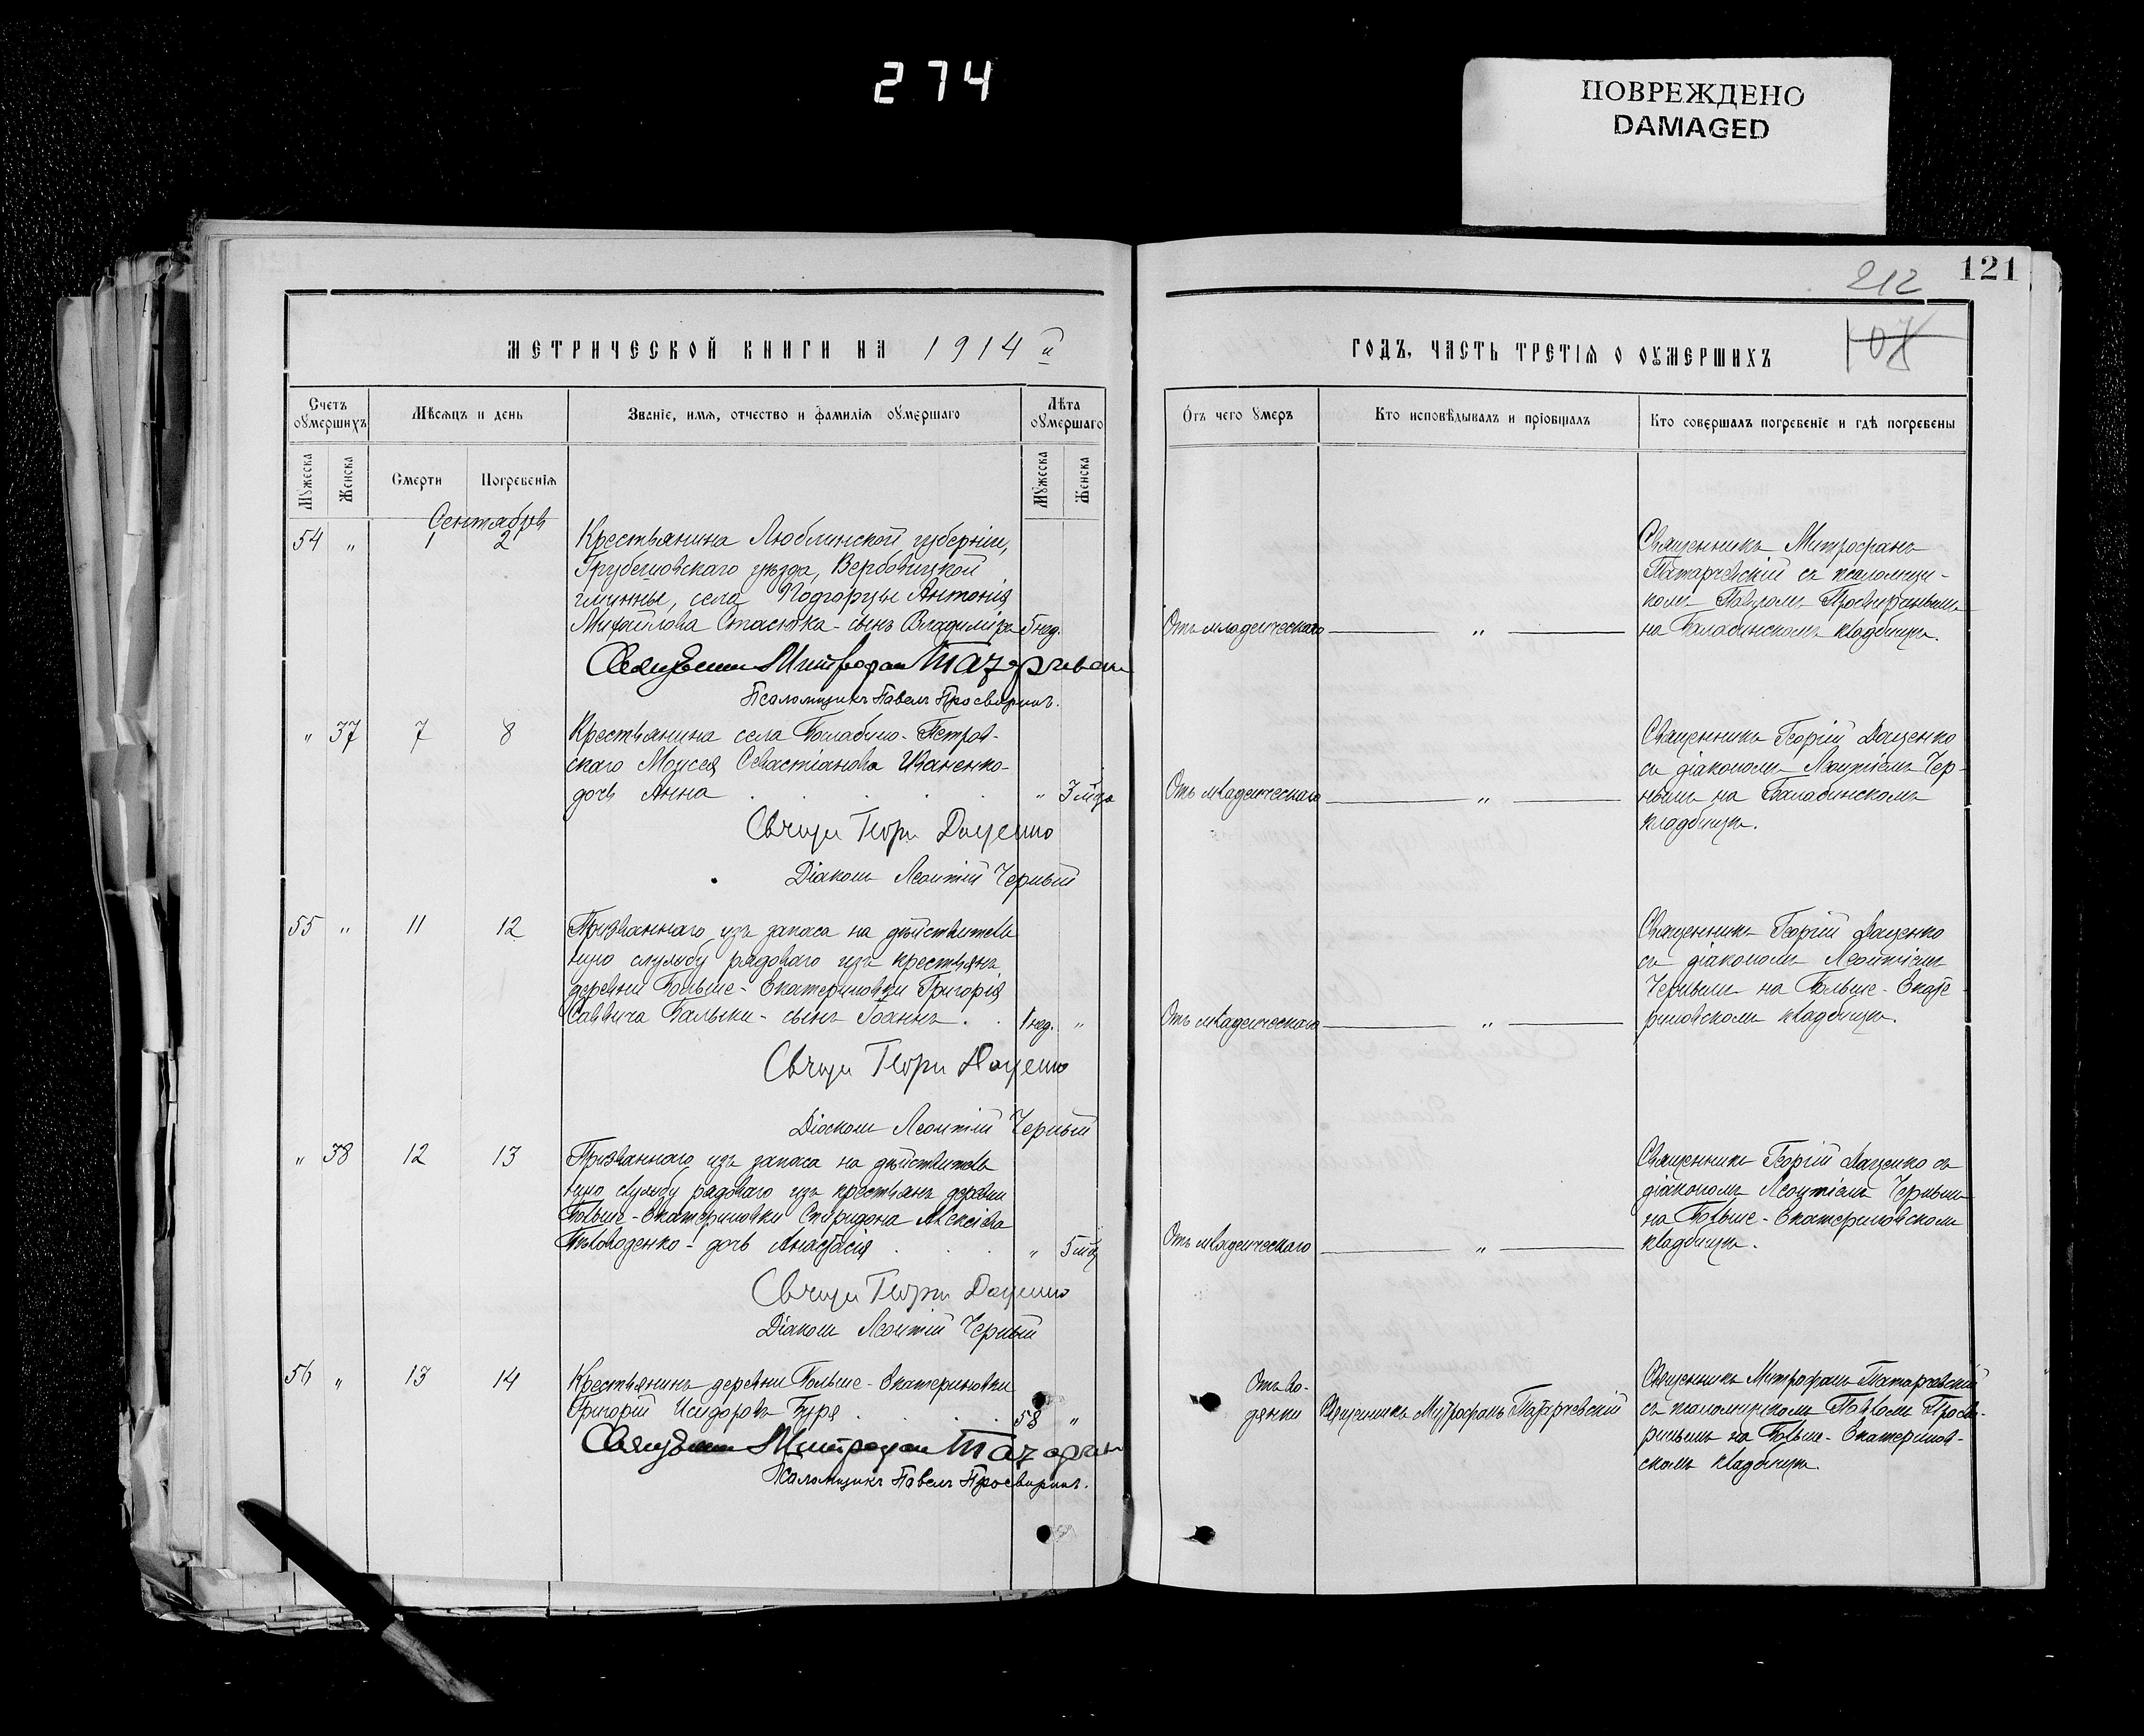 274
ПОВРЕЖДЕНО
DAMAGED
121
212
107
МЕТРИЧЕСКОЙ КНИГИ НА 1914 й
Счетъ оумершихъ
Мѣсяцъ и день
Званіе, имя, отчество и фамилія оумершаго
Лѣта оумершаго
Мужеска
Женска
Смерти
Погребенія
Мужеска
Женска
Сентябрь
54 „ 1 2
Крестьянина Люблинской губерніи,
Грубешовскаго уѣзда, Вербовицкой
гмины, села Подгорцы Антонія
Михайлова Стасюка - сынъ Владиміръ 5 нед.
Священникъ Митрофанъ
Псаломщикъ Павелъ Просвиринъ.
„ 37 7 8
Крестьянина села Балабино-Петров-
скаго Моисея Севастіанова Иваненко-
дочь Анна „ 3 мѣс
Свящ Георг Даценко
Діаконъ Леонтій Черный
55 „ 11 12
Призваннаго изъ запаса на дѣйствитель
ную службу рядового изъ крестьянъ
деревни Больше-Екатериновки Григорія
Саввича Балыки - сынъ Іоаннъ . . 1 нед. „
Свящ Георг Даценко
Діаконъ Леонтій Черный
„ 38 12 13
Призваннаго изъ запаса на дѣйствитель
ную службу рядового изъ крестьянъ деревни
Больше-Екатериновки Спиридона Алексіева
дочь Анастасія „ 5 мѣс
Свящ Георг Даценко
Діаконъ Леонтій Черный
56 „ 13 14
Крестьянинъ деревни Больше-Екатериновки
Григорій Исидоровъ 58 „
Священникъ Митрофанъ
Псаломщикъ Павелъ Просвиринъ.
ГОДЪ, ЧАСТЬ ТРЕТІЯ О ОУМЕРШИХЪ
Отъ чего умеръ
Кто исповѣдывалъ и пріобщалъ
Кто совершалъ погребеніе и гдѣ погребены
Отъ младенческаго „
Священникъ Митрофанъ
Татарчевскій съ псаломщи-
комъ Павломъ Просвиринымъ
на Балабинскомъ кладбищѣ.
Отъ младенческаго „
Священникъ Георгій Даценко
съ діакономъ Леонтіемъ Чер-
нымъ на Балабинскомъ
кладбищѣ.
Отъ младенческаго „
Священникъ Георгій Даценко
съ діакономъ Леонтіемъ
Чернымъ на Больше-Екате-
риновскомъ кладбищѣ.
Отъ младенческаго „
Священникъ Георгій Даценко съ
діакономъ Леонтіемъ Чернымъ
на Больше-Екатериновскомъ
кладбищѣ.
Отъ во-
дянки
Священникъ Митрофанъ Татарчевскій
Священникъ Митрофанъ Татарчевскій
съ псаломщикомъ Павломъ Просви-
ринымъ на Больше-Екатеринов-
скомъ кладбищѣ.